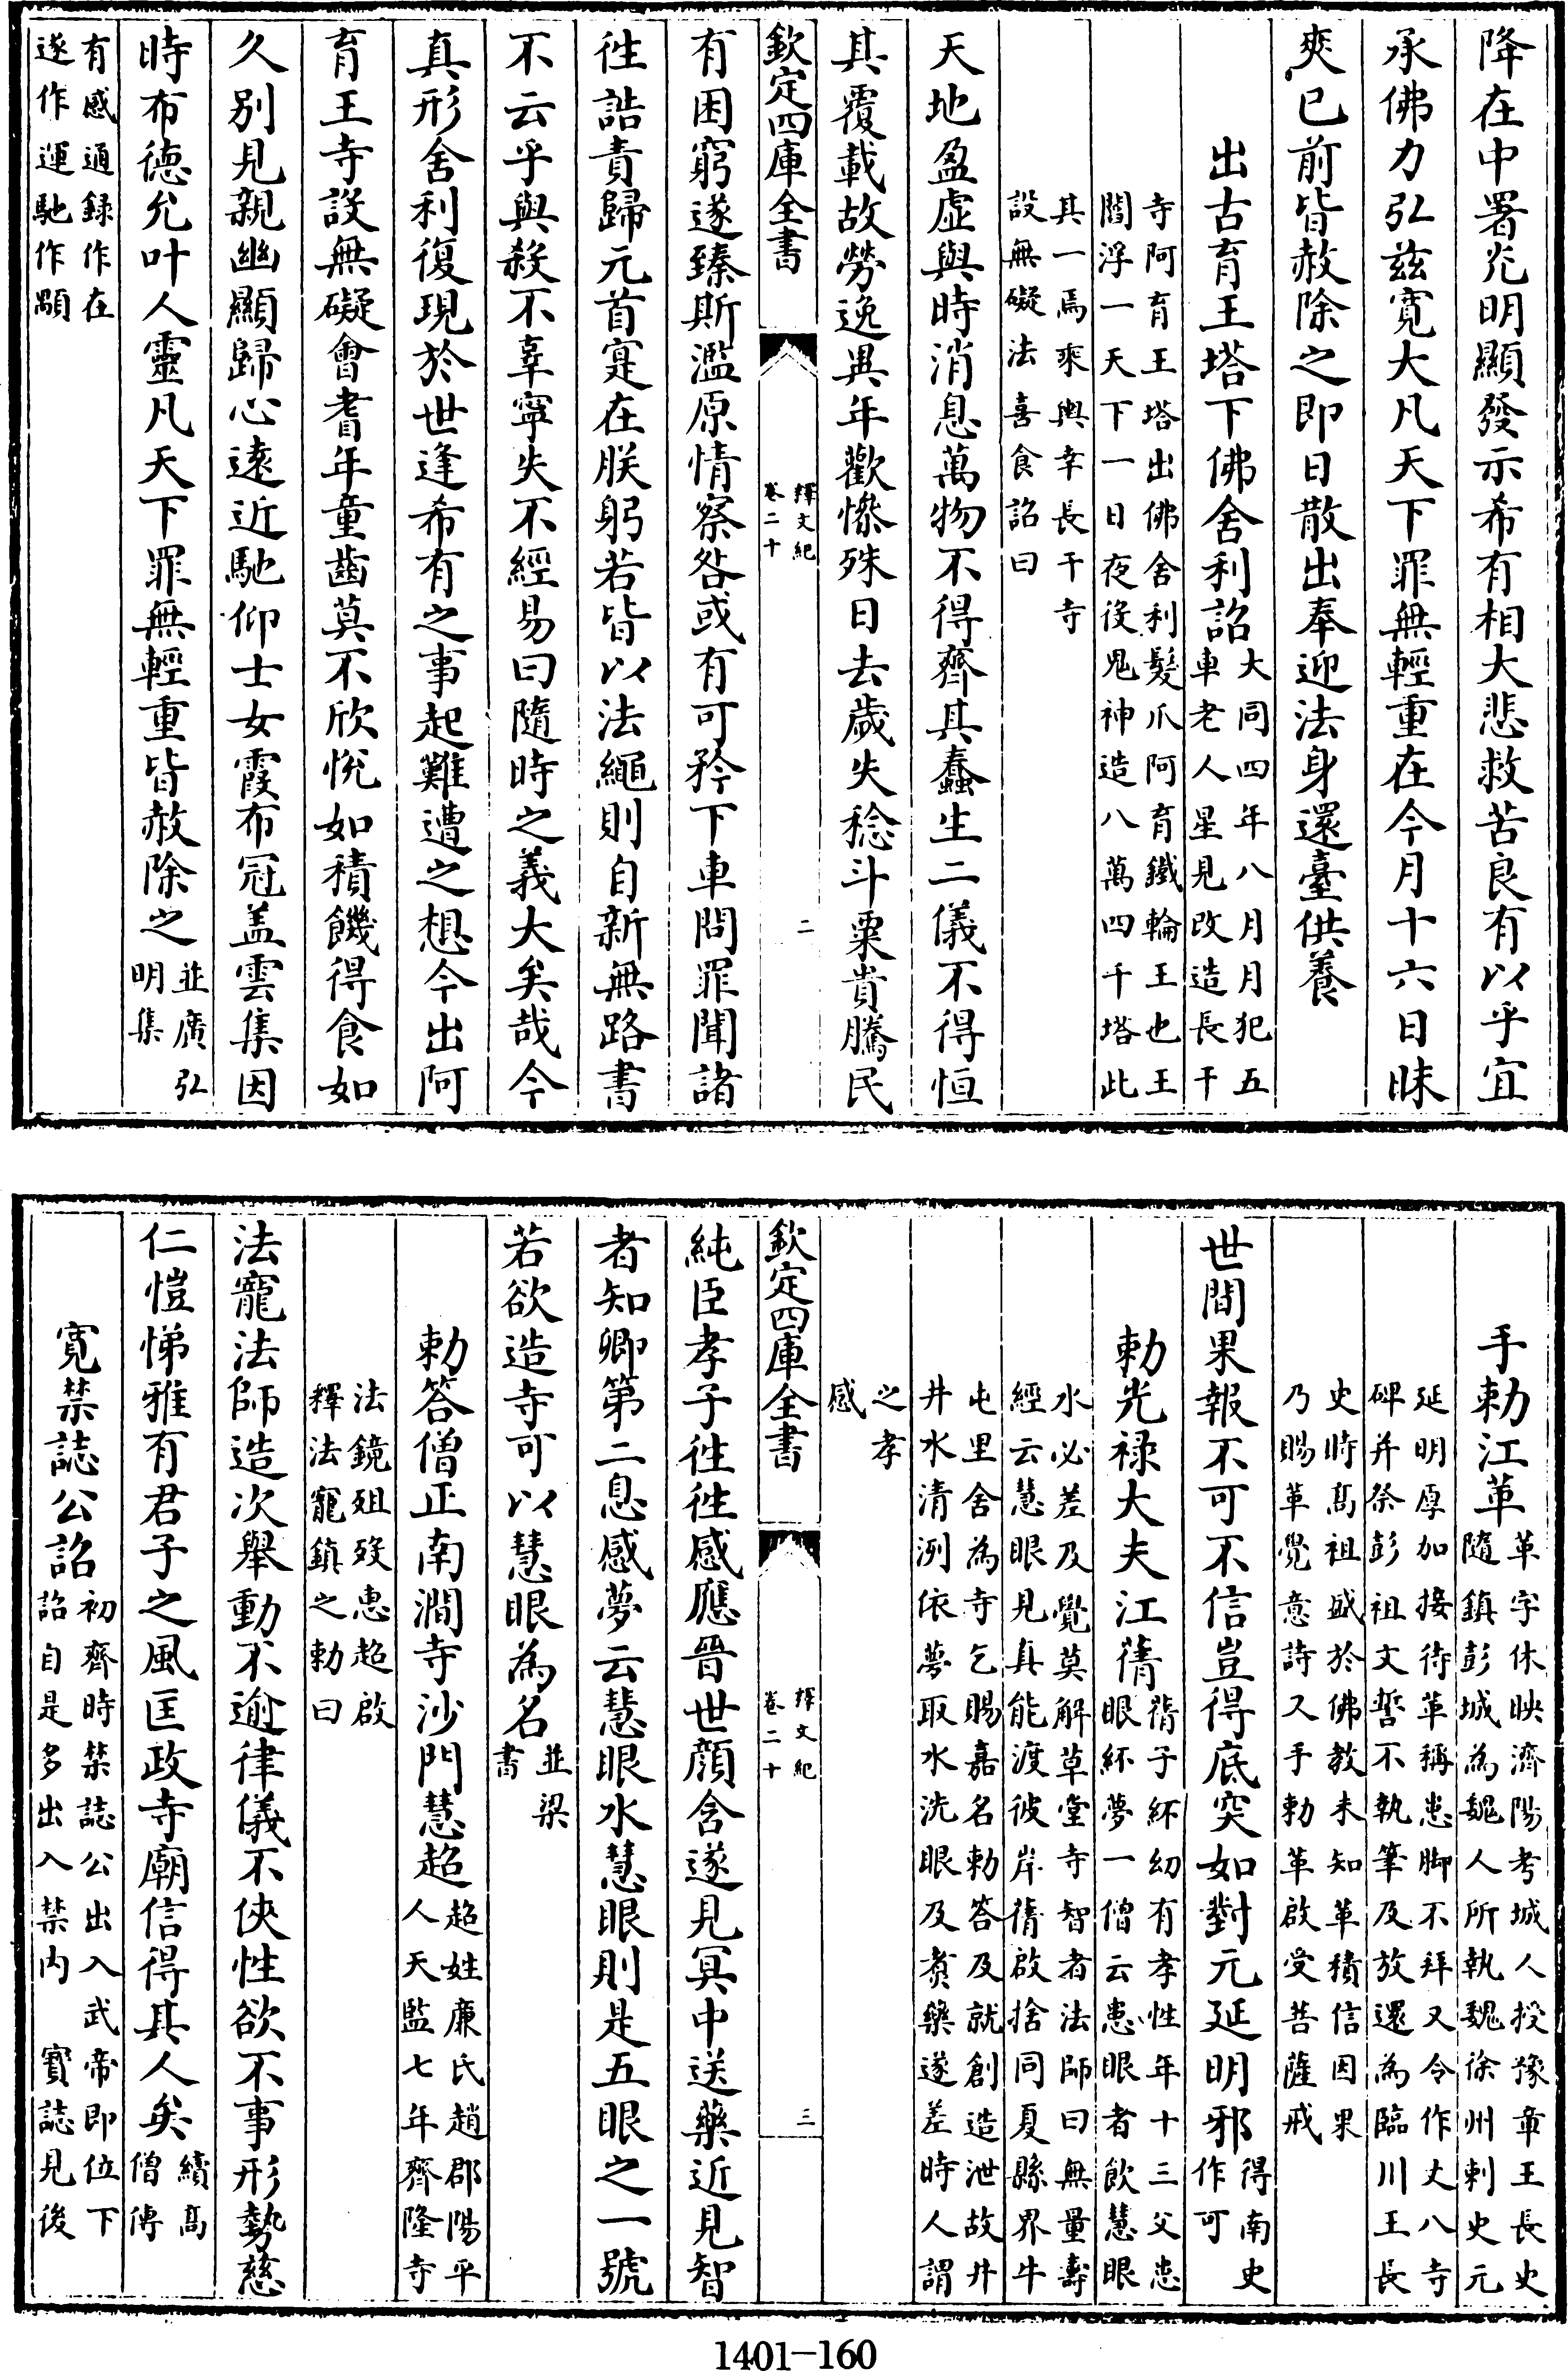 降在中署光明顯發示希有相大悲救苦良有以乎宜
承佛力弘兹寛大凡天下罪無輕重在今月十六日昧
爽已前皆赦除之即日散出奉迎法身還臺供養
出古育王塔下佛舍利詔大同四年八月月犯五車老人星見改造長干
寺阿育王塔出佛舍利髮爪阿育鐵輪王也王閻浮一天下一日夜役鬼神造八萬四千塔此
其一焉乘輿幸長干寺設無礙法喜食詔曰
天地盈虛與時消息萬物不得齊其蠢生二儀不得恒
其覆載故勞逸異年歡慘殊日去歲失稔斗粟貴騰民
欽定四庫全書 釋文紀 卷二十 二
有困窮遂臻斯濫原情察咎或有可矜下車問罪聞諸
徃誥責歸元首寔在朕躬若皆以法繩則自新無路書
不云乎與殺不辜寧失不經易曰隨時之義大矣哉今
真形舍利復現於世逢希有之事起難遭之想今出阿
育王寺設無礙會耆年童齒莫不欣悅如積饑得食如
久別見親幽顯歸心遠近馳仰士女霞布冠盖雲集因
時布德允叶人靈凡天下罪無輕重皆赦除之並廣弘明集
有感通録作在遂作運馳作顒
手勅江革革字休映濟陽考城人授豫章王長史隨鎮彭城為魏人所執魏徐州刺史元
延明厚加接待革稱患脚不拜又令作丈八寺碑并祭彭祖文誓不執筆及放還為臨川王長
史時髙祖盛於佛教未知革積信因果乃賜革覺意詩又手勅革啟受菩薩戒
世間果報不可不信豈得底突如對元延明邪得南史作可
勅光禄大夫江蒨蒨子紑幼有孝性年十三父患眼紑夢一僧云患眼者飲慧眼
水必差及覺莫解草堂寺智者法師曰無量壽經云慧眼見真能渡彼岸蒨啟捨同夏縣界牛
屯里舍為寺乞賜嘉名勅答及就創造泄故井井水清洌依夢取水洗眼及煑藥遂差時人謂
之孝感
欽定四庫全書 釋文紀 卷二十 三
純臣孝子徃徃感應晉世顔含遂見冥中送藥近見智
者知卿第二息感夢云慧眼水慧眼則是五眼之一號
若欲造寺可以慧眼為名並梁書
勅答僧正南澗寺沙門慧超超姓廉氏趙郡陽平人天監七年齊隆寺
法鏡殂歿惠超啟釋法寵鎮之勅曰
法寵法師造次舉動不逾律儀不俠性欲不事形勢慈
仁愷悌雅有君子之風匡政寺廟信得其人矣續髙僧傳
寛禁誌公詔初齊時禁誌公出入武帝即位下詔自是多出入禁内 寳誌見後
1401-160